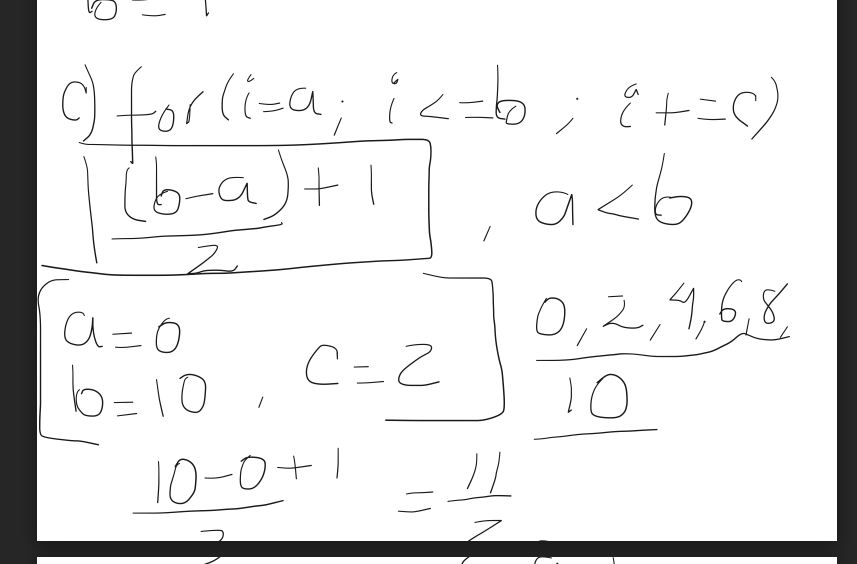 b = 1
c) for (i=a; i <=b ; i +=c)
(b-a) + 1 , a < b
2
a=0
b=10 , c=2
0,2,4,6,8,
10
10-0+1 = 11
2 2